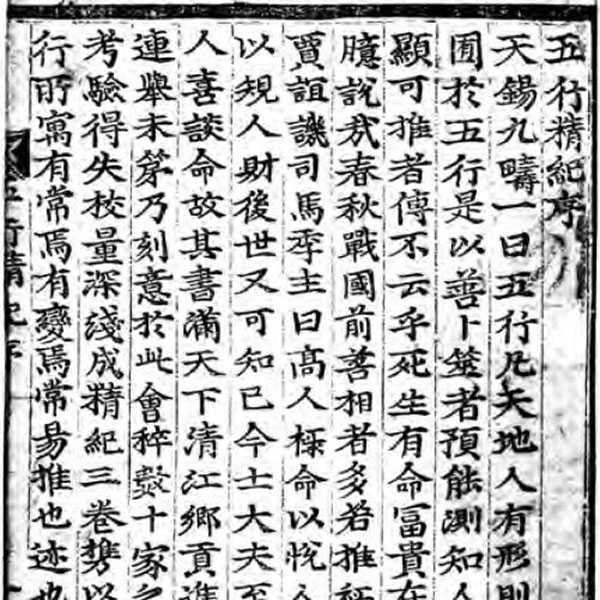 五行精紀序
天錫九疇一曰五行凡天地人有形則
囿於五行是以善卜筮者預能測知人
顯可推者傳不云乎死生有命冨貴在
臆說哉春秋戰國前善相者多若推
賈誼譏司馬季主曰高人祿命以悅人
以規人財後世又可知已今士大夫至
人喜談命故其書滿天下清江鄉貢進
連舉未苐乃刻意於此會稡數十家之
考驗得失校量深淺成精紀三卷攜以
行所寓有常焉有變焉常易推也迹也